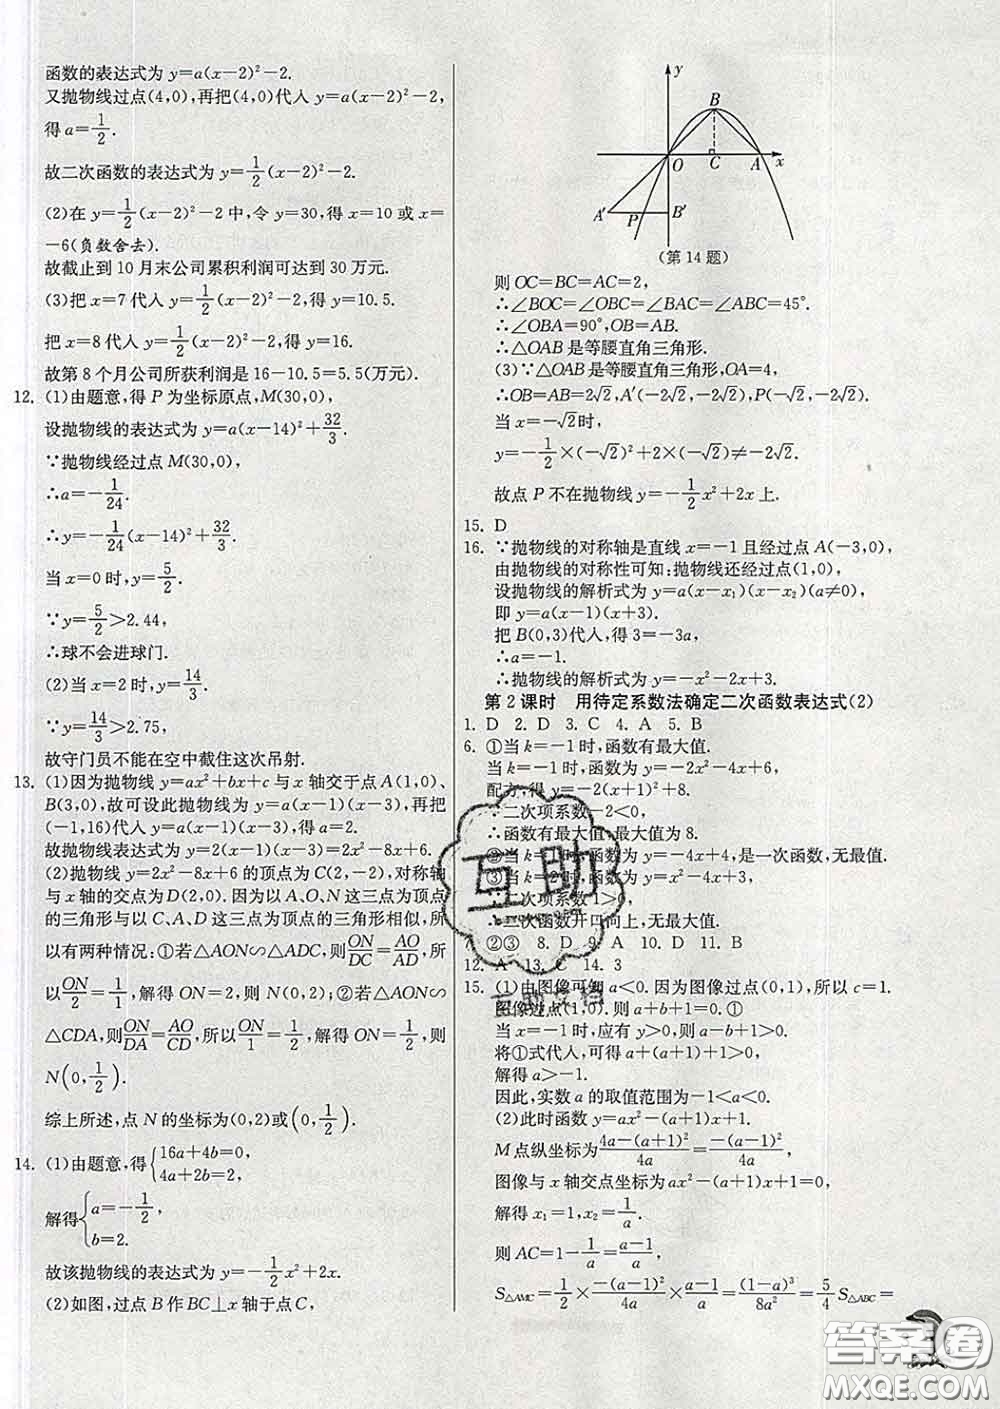 函数的表达式为 y=a(x-2)²-2.
又抛物线过点(4,0),再把(4,0)代入 y=a(x-2)²-2,
得 a=1/2.
故二次函数的表达式为 y=1/2(x-2)²-2.
(2)在 y=1/2(x-2)²-2 中,令 y=30,得 x=10 或 x=
-6(负数舍去).
故截止到 10 月末公司累积利润可达到 30 万元.
(3)把 x=7 代入 y=1/2(x-2)²-2,得 y=10.5.
把 x=8 代入 y=1/2(x-2)²-2,得 y=16.
故第 8 个月公司所获利润是 16-10.5=5.5(万元).
12. (1)由题意,得 P 为坐标原点,M(30,0),
设抛物线的表达式为 y=a(x-14)²+32/3.
∵抛物线经过点 M(30,0),
∴a=-1/24.
∴y=-1/24(x-14)²+32/3.
当 x=0 时,y=5/2.
∵y=5/2>2.44,
∴球不会进球门.
(2)当 x=2 时,y=14/3.
∵y=14/3>2.75,
故守门员不能在空中截住这次吊射.
13. (1)因为抛物线 y=ax²+bx+c 与 x 轴交于点 A(1,0)、
B(3,0),故可设此抛物线为 y=a(x-1)(x-3),再把
(-1,16)代入 y=a(x-1)(x-3),得 a=2.
故抛物线表达式为 y=2(x-1)(x-3)=2x²-8x+6.
(2)抛物线 y=2x²-8x+6 的顶点为 C(2,-2),对称轴
与 x 轴的交点为 D(2,0). 因为以 A、O、N 这三点为顶点
的三角形与以 C、A、D 这三点为顶点的三角形相似,所
以有两种情况:①若△AON∽△ADC,则ON/DC=AO/AD,所
以ON/2=1/1,解得 ON=2,则 N(0,2);②若△AON∽
△CDA,则ON/DA=AO/CD,所以ON/1=1/2,解得 ON=1/2,则
N(0,1/2).
综上所述,点 N 的坐标为(0,2)或(0,1/2).
14. (1)由题意,得{16a+4b=0,
4a+2b=2,
解得{a=-1/2,
b=2.
故该抛物线的表达式为 y=-1/2x²+2x.
(2)如图,过点 B 作 BC⊥x 轴于点 C,
y
B
O C A x
A′ P B′
(第 14 题)
则 OC=BC=AC=2,
∴∠BOC=∠OBC=∠BAC=∠ABC=45°.
∴∠OBA=90°,OB=AB.
∴△OAB 是等腰直角三角形.
(3)∵△OAB 是等腰直角三角形,OA=4,
∴OB=AB=2√2,A′(-2√2,-2√2),P(-√2,-2√2).
当 x=-√2时,
y=-1/2×(-√2)²+2×(-√2)≠-2√2.
故点 P 不在抛物线 y=-1/2x²+2x 上.
15. D
16. ∵抛物线的对称轴是直线 x=-1 且经过点 A(-3,0),
由抛物线的对称性可知:抛物线还经过点(1,0),
设抛物线的解析式为 y=a(x-x₁)(x-x₂)(a≠0),
即 y=a(x-1)(x+3).
把 B(0,3)代入,得 3=-3a,
∴a=-1.
∴抛物线的解析式为 y=-x²-2x+3.
第 2 课时 用待定系数法确定二次函数表达式(2)
1. D 2. D 3. C 4. A 5. B
6. ①当 k=-1 时,函数有最大值.
当 k=-1 时,函数为 y=-2x²-4x+6,
配方,得 y=-2(x+1)²+8.
∵二次项系数-2<0,
∴函数有最大值,最大值为 8.
②当 k=1 时,函数为 y=-4x+4,是一次函数,无最值.
③当 k=2 时,函数为 y=x²-4x+3,
∵二次项系数 1>0,
∴二次函数开口向上,无最大值.
7. ②③ 8. D 9. A 10. D 11. B
12. A 13. C 14. 3
15. (1)由图像可知 a<0. 因为图像过点(0,1),所以 c=1.
图像过点(1,0). 则 a+b+1=0.①
当 x=-1 时,应有 y>0,则 a-b+1>0.
将①式代入,可得 a+(a+1)+1>0,
解得 a>-1.
因此,实数 a 的取值范围为-1<a<0.
(2)此时函数 y=ax²-(a+1)x+1.
M 点纵坐标为4a-(a+1)²/4a=-(a-1)²/4a,
图像与 x 轴交点坐标为 ax²-(a+1)x+1=0,
解得 x₁=1,x₂=1/a,
则 AC=1-1/a=a-1/a,
S△AMC=1/2×-(a-1)²/4a×a-1/a=(1-a)³/8a²=5/4S△ABC=
互助
互助文档
答案圈
MXQE.COM